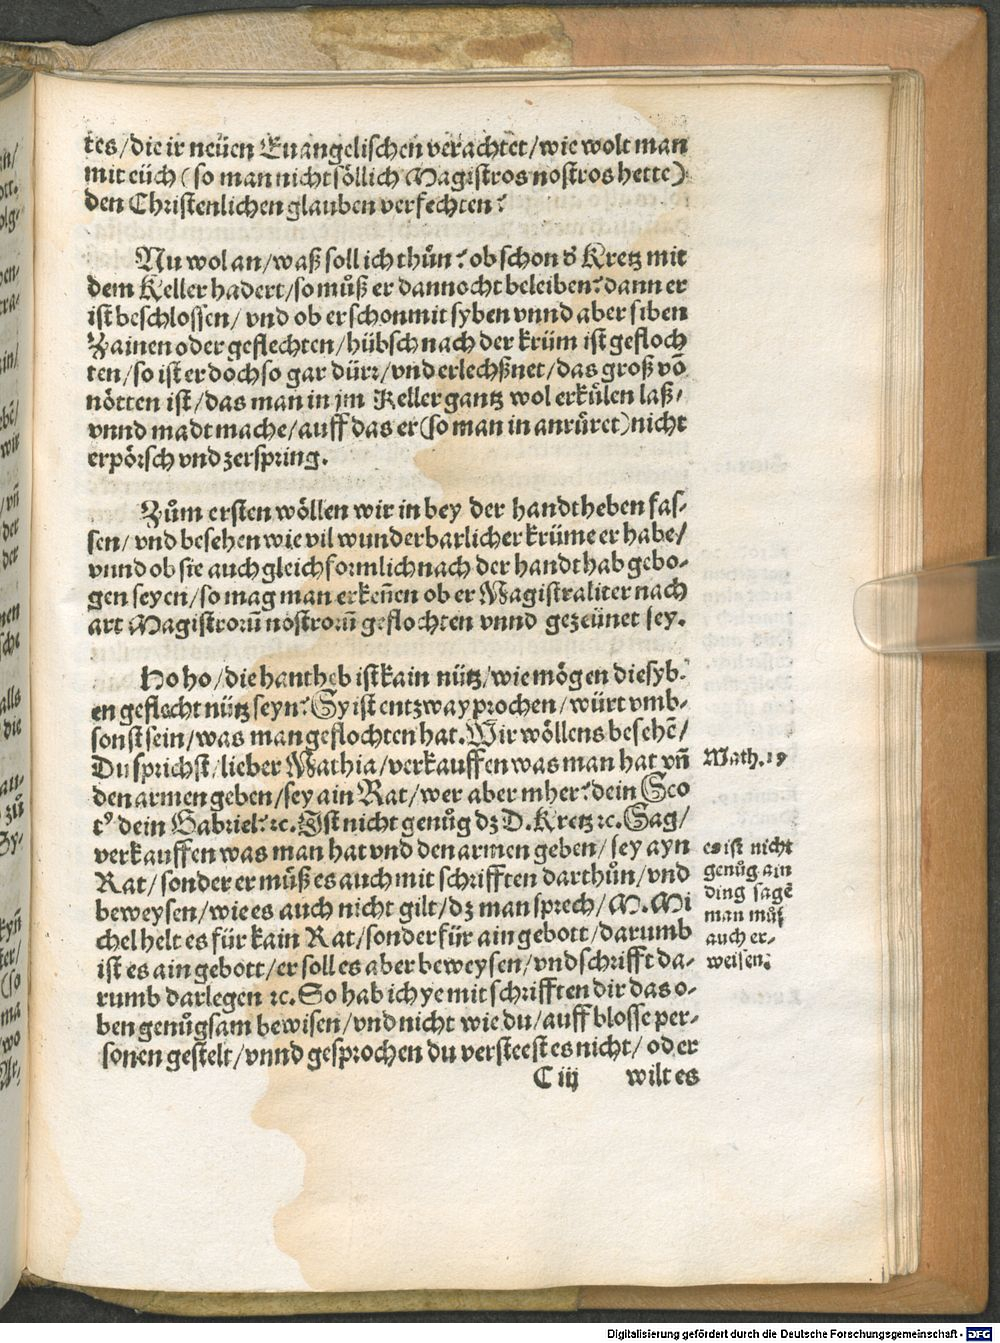 tes/die ir neüen Euangelischen verachtet/wie wolt man
mit eüch (so man nicht söllich Magistros nostros hette)
den Christenlichen glauben verfechten?
Nu wol an/waß soll ich thůn? ob schon d' Kretz mit
dem Keller hadert/so můß er dannocht beleiben? dann er
ist beschlossen/ vnd ob er schon mit syben vnnd aber siben
Zainen oder geflechten/hübsch nach der krüm ist gefloch
ten/so ist er doch so gar dürr/vnd erlechßnet/das groß võ
nötten ist/das man in jm Keller gantz wol erkůlen laß/
vnnd madt mache/auff das er (so man in anrůret) nicht
erpörsch vnd zerspring.
Zům ersten wöllen wir in bey der handtheben fas-
sen/ vnd besehen wie vil wunderbarlicher krüme er habe/
vnnd ob sie auch gleichformlich nach der handthab gebo-
gen seyen/so mag man erkeñen ob er Magistraliter nach
art Magistrorũ nostrorũ geflochten vnnd gezeünet sey.
Ho ho/die hantheb ist kain nütz/wie mögen die syb-
en geflecht nütz seyn? Sy ist entzway prochen/würt vmb-
sonst sein/was man geflochten hat. Wir wöllens besehẽ/
Du sprichst/lieber Mathia/verkauffen was man hat vñ
den armen geben/sey ain Rat/wer aber mher? dein Sco
t⁹ dein Gabriel? ꝛc. Ist nicht genůg dz D. Kretz ꝛc. Sag/
verkauffen was man hat vnd den armen geben/ sey ayn
Rat/sonder er můß es auch mit schrifften darthůn/vnd
beweysen/wie es auch nicht gilt/dz man sprech/M. Mi
chel helt es für kain Rat/sonder für ain gebott/darumb
ist es ain gebott/er soll es aber beweysen/vnd schrifft da-
rumb darlegen ꝛc. So hab ich ye mit schrifften dir das o-
ben genůgsam bewisen/vnd nicht wie du/auff blosse per-
sonen gestelt/vnnd gesprochen du versteest es nicht/ oder
C iij wilt es
Math. 19
es ist nicht
genůg ain
ding sagẽ
man můß
auch er-
weisen.
Digitalisierung gefördert durch die Deutsche Forschungsgemeinschaft - DFG